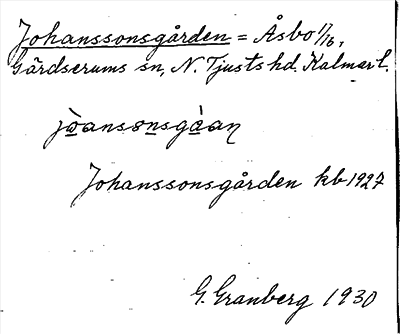 Johanssonsgården = Åsbo 1/16,
Gärdserums sn, N. Tjusts hd. Kalmar l.
jòansonsgàan
Johanssonsgården kb 1927
G. Granberg 1930